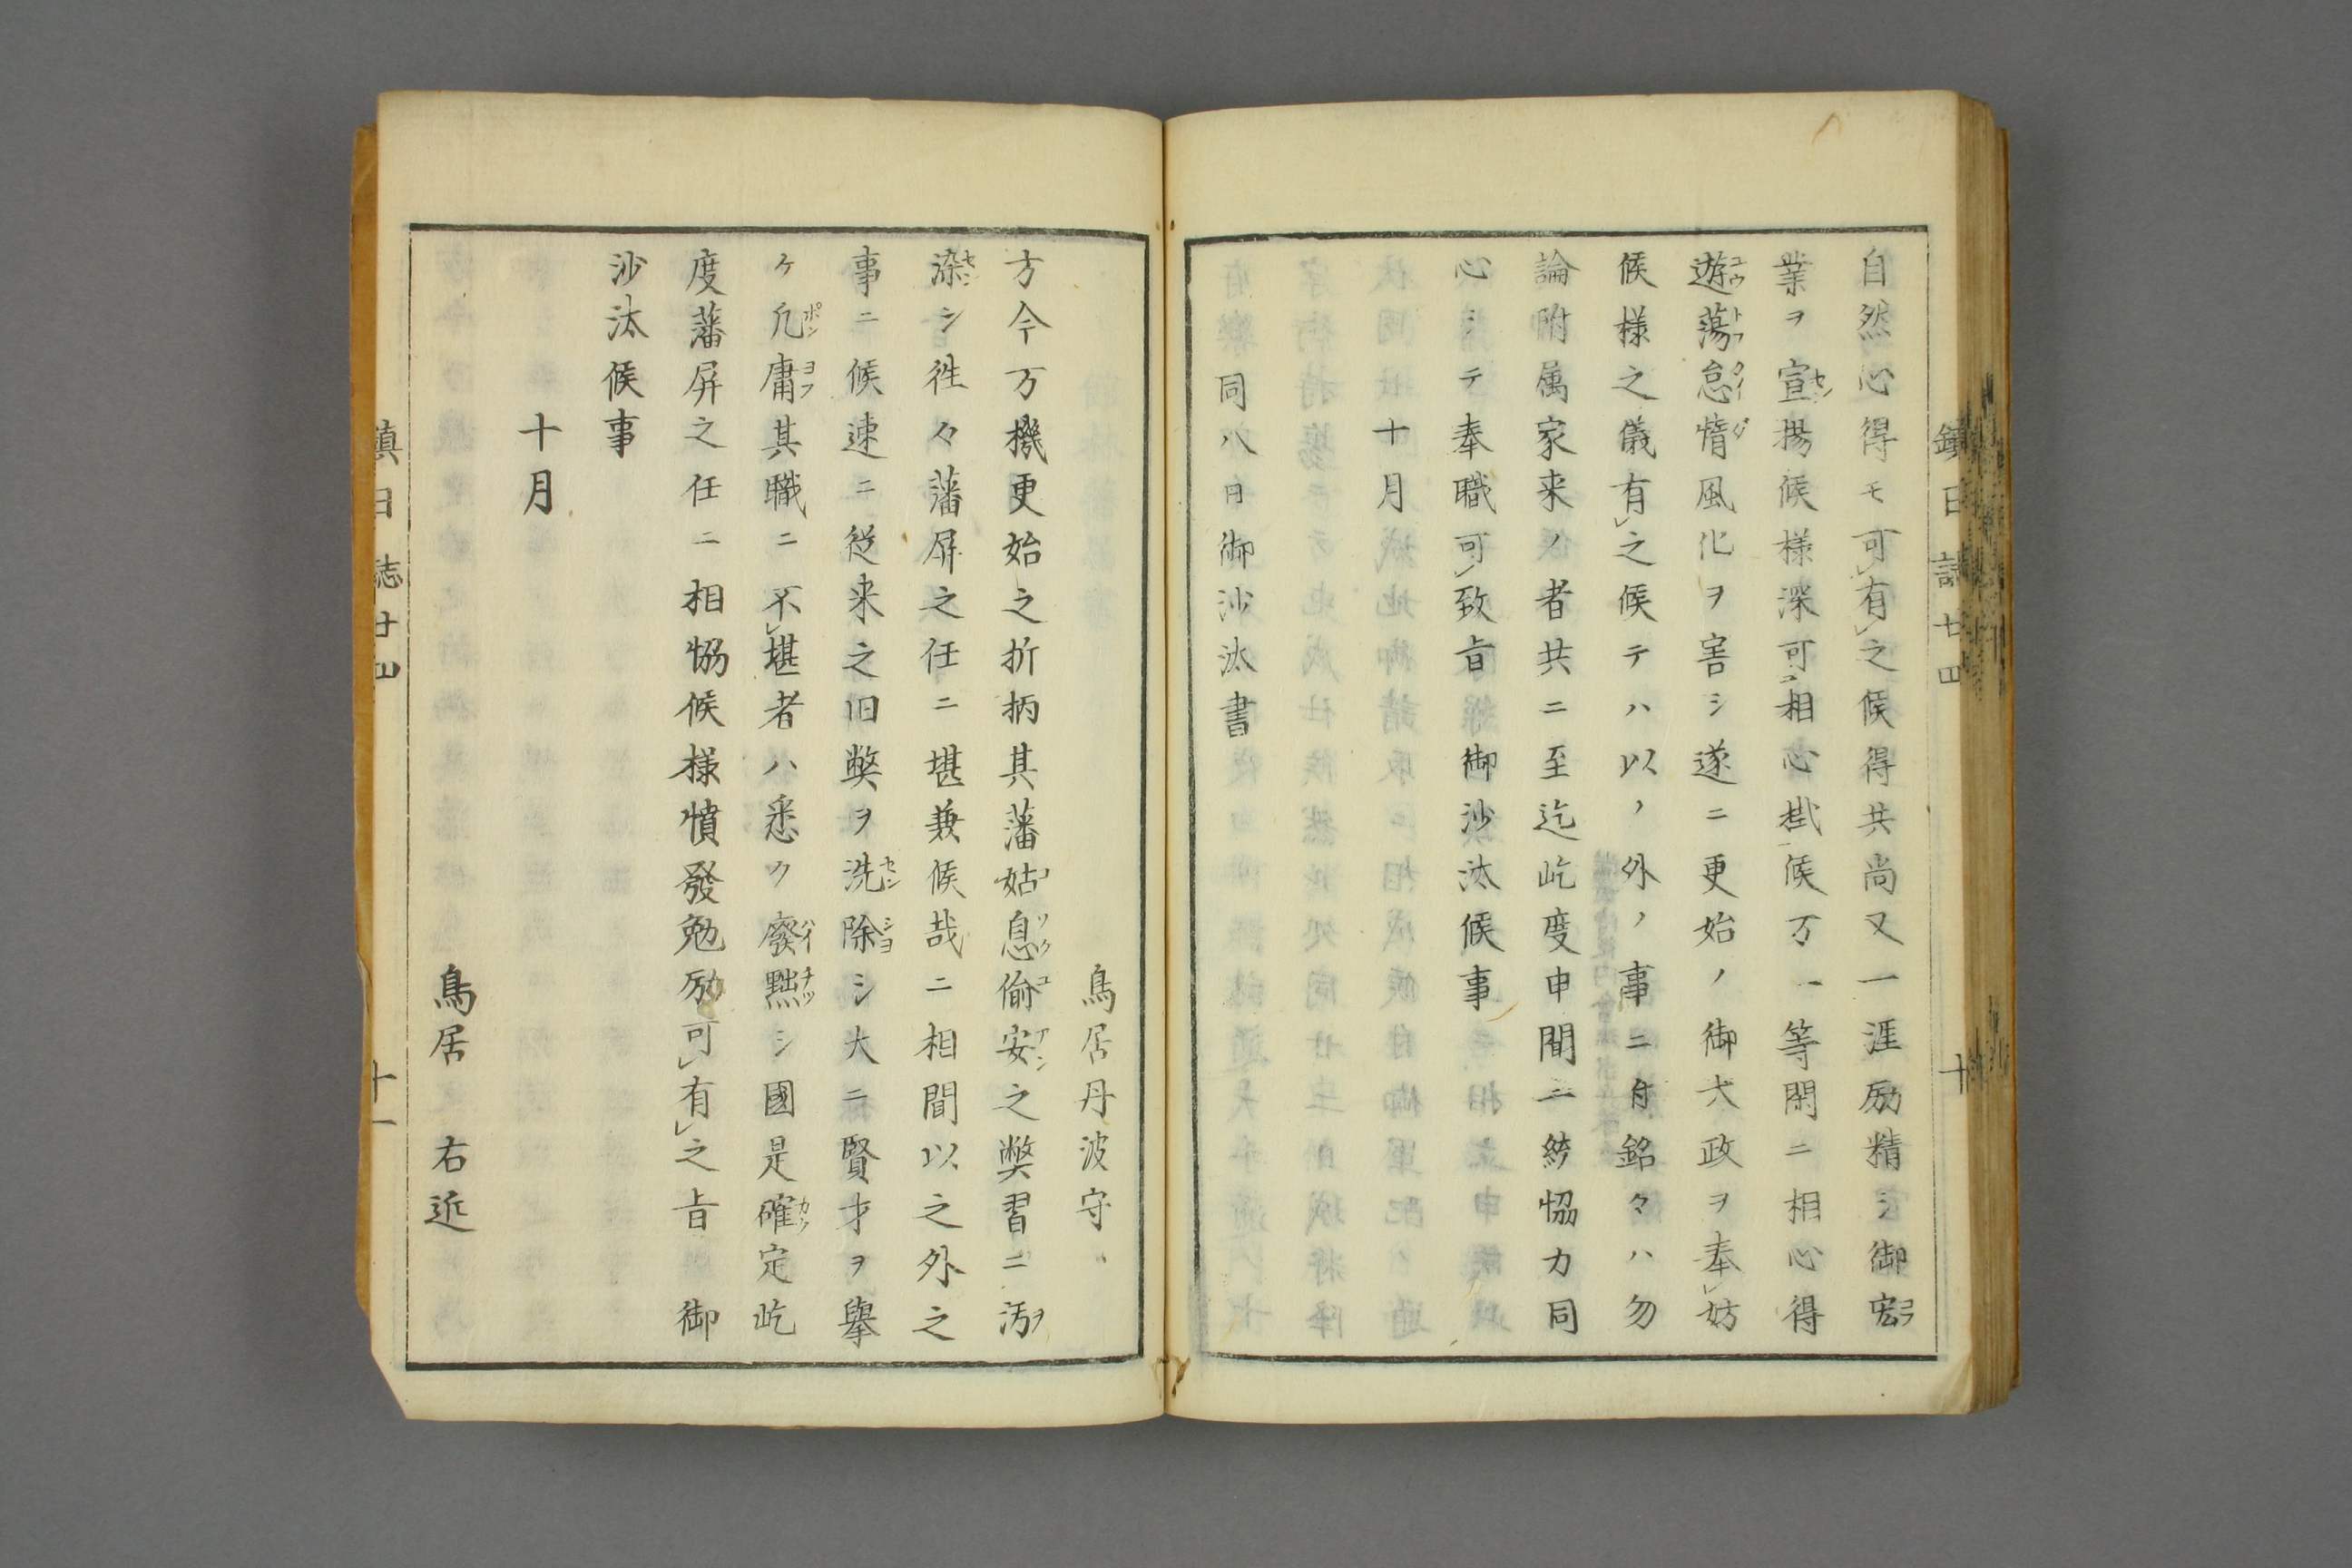 自然心得モ可有之候得共尚又一涯励精シ御宏
業ヲ宣揚候様深可相心掛候万一等閑ニ相心得
遊蕩怠惰風化ヲ害シ遂ニ更始ノ御大政ヲ奉妨
候様之儀有之候テハ以ノ外ノ事ニ付銘々ハ勿
論附属家来ノ者共ニ至迄屹度申聞ニ綺協力同
心シテ奉職可致旨御沙汰候事
十月
同八日御沙汰書
鎮日誌廿四
十
鳥居丹波守
方今万機更始之折柄其藩姑息偷安之弊習ニ汚
染シ徃々藩屏之任ニ堪兼候哉ニ相聞以之外之
事ニ候速ニ従来之旧弊ヲ洗除シ大ニ賢才ヲ擧
ケ凡庸其職ニ不堪者ハ悉ク廢黜シ國是確定屹
度藩屏之任ニ相協候様憤發勉励可有之旨御
沙汰候事
十月
鳥居右近
鎮日誌廿四
十一